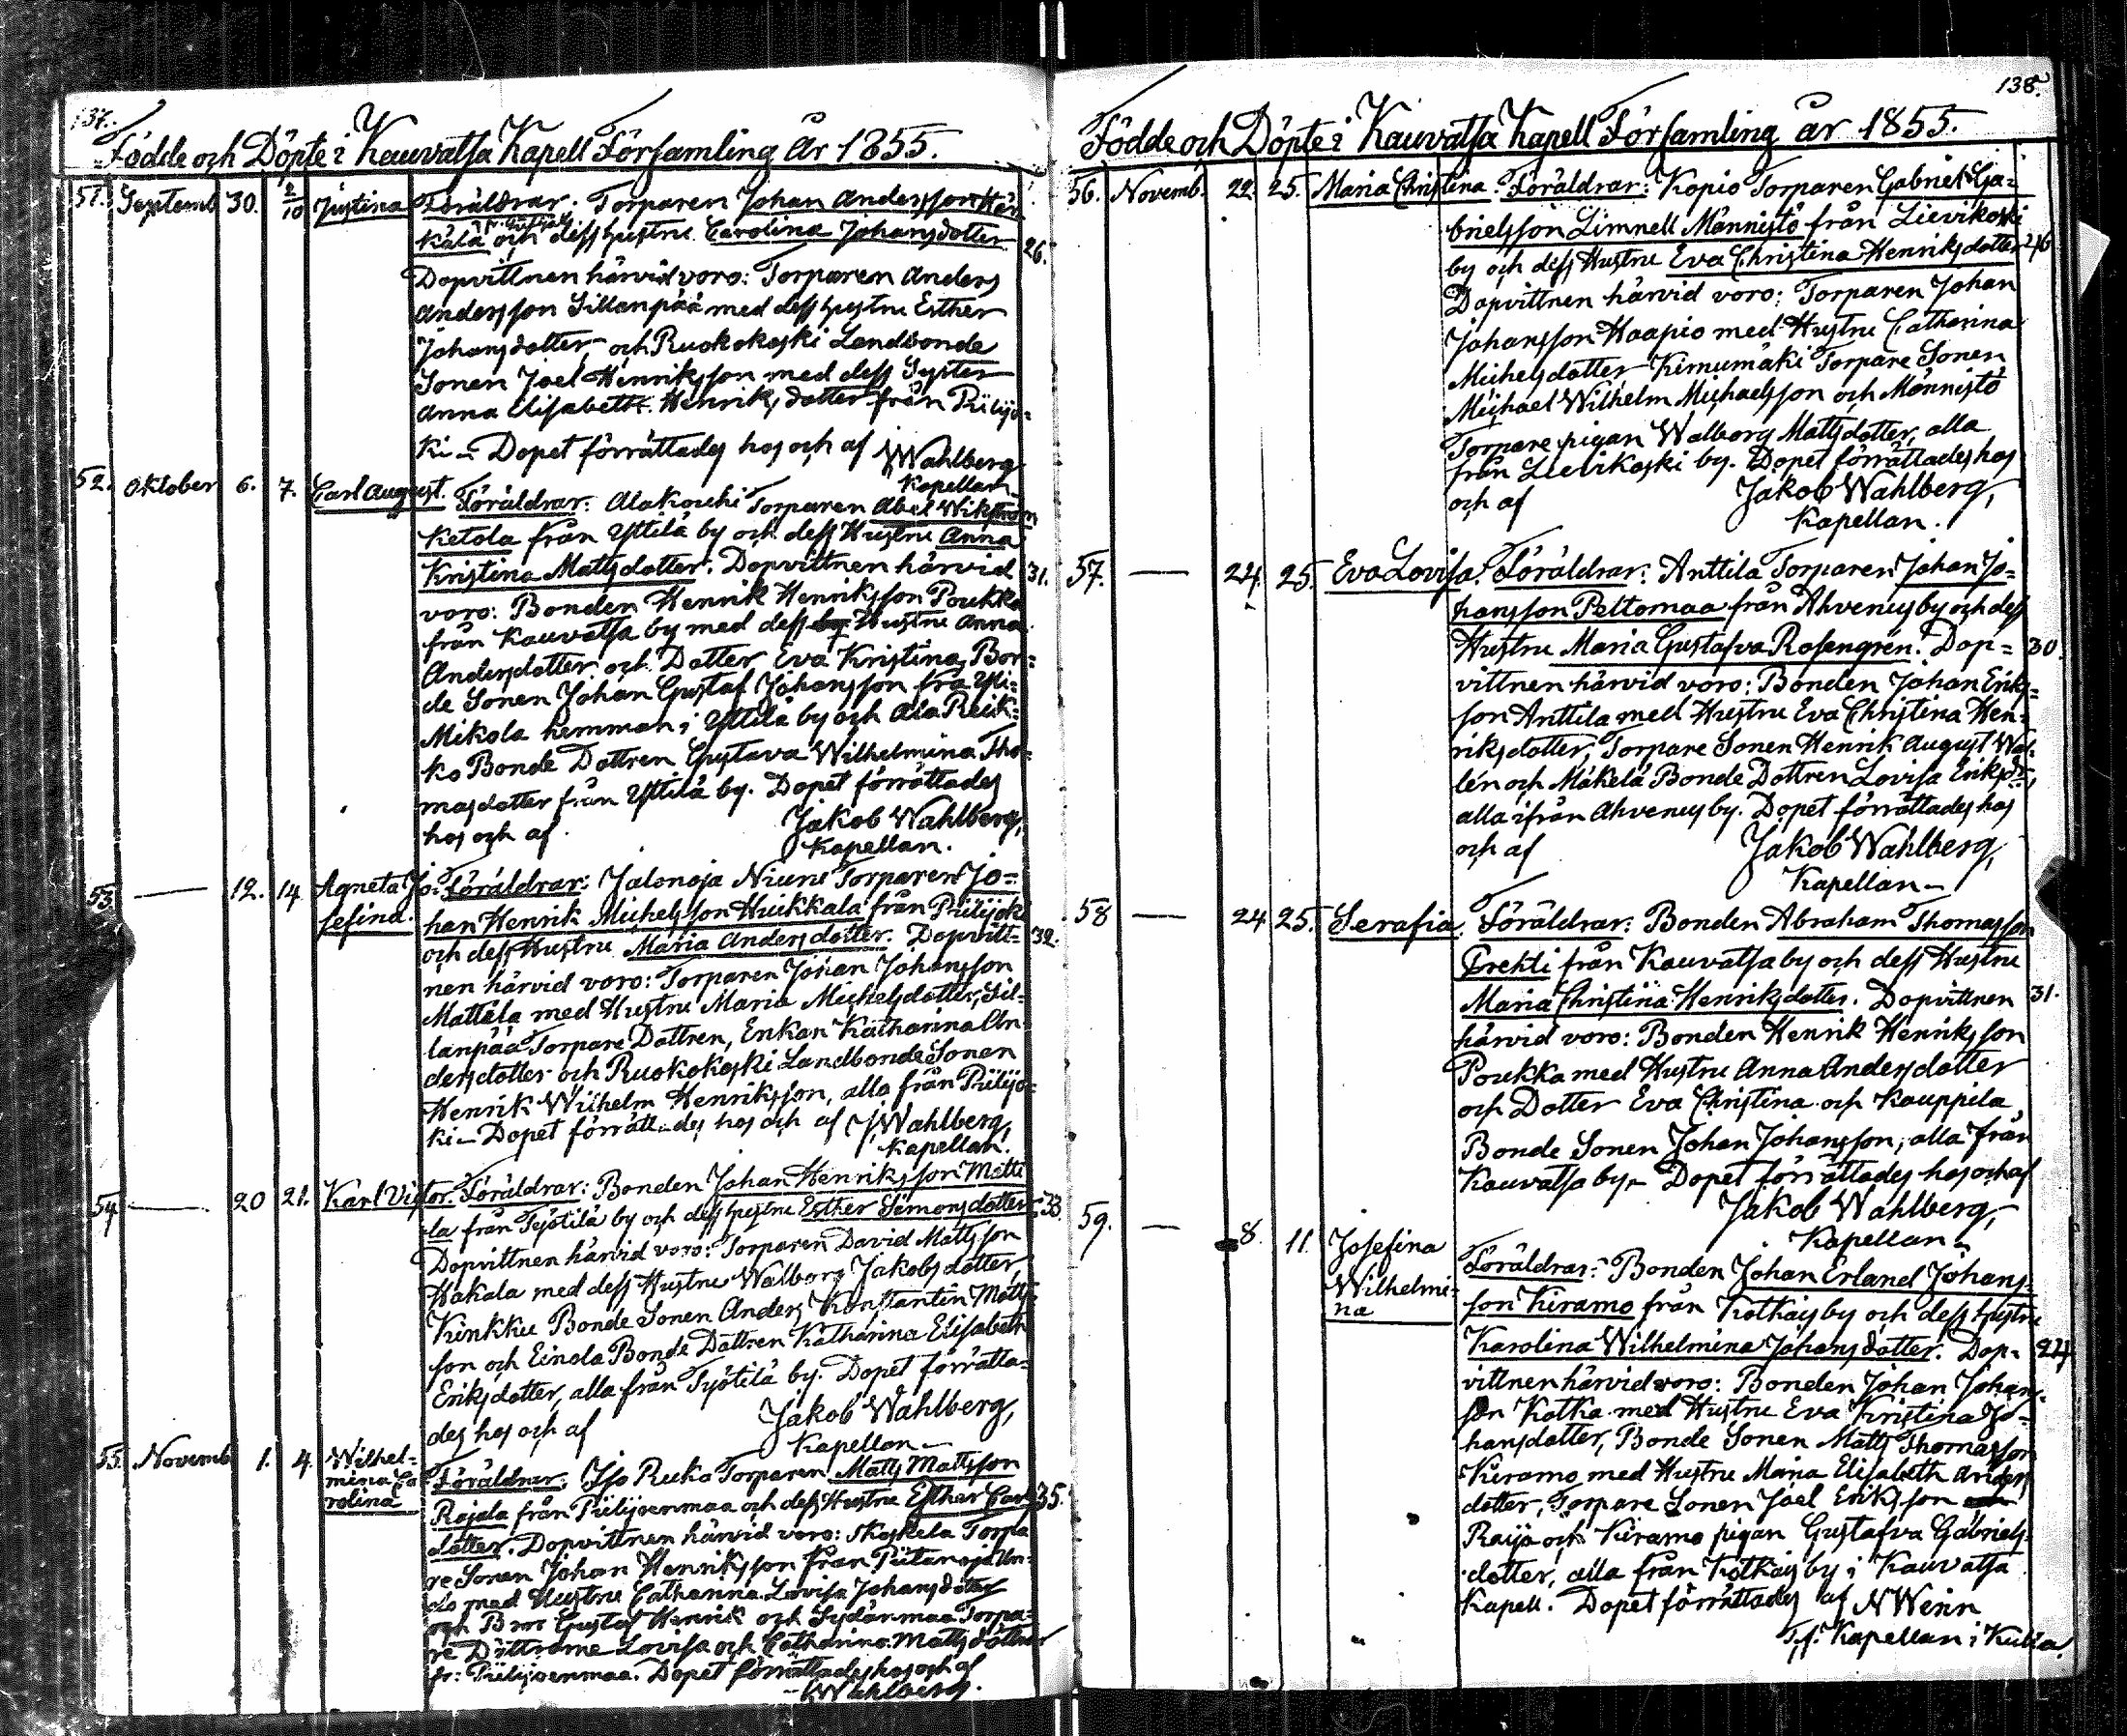 137.
Födde och Döpte i Kauvatsa Kapell Församling År 1855.
51. Septemb 30. 2/10 Justina Föräldrar: Torparen Johan Andersson Här
kälä och dess hustru Carolina Johansdotter 26.
Dopvittnen härvid voro: Torparen Anders
Andersson Sillanpää med dess hustru Esther
Johansdotter och Ruokokoski Landbonde
Sonen Joel Henriksson med dess Syster
Anna Elisabeth Henriksdotter från Piilijo-
ki – Dopet förrättades hos och af J Wahlberg
Kapellan
52. Oktober 6. 7. Carl August. Föräldrar: Alakouhi Torparen Abel Wikström
Ketola från Yttilä by och dess Hustru Anna
Kristina Mattsdotter. Dopvittnen härvid 31.
voro: Bonden Henrik Henriksson Poukka
från Kauvatsa by med dess Hustru Anna
Andersdotter och Dotter Eva Kristina, Bon-
de Sonen Johan Gustaf Johansson fra Yli-
Mikola hemman i Yttilä by och Ala Peuk-
ko Bonde Dottren Gustava Wilhelmina Tho-
masdotter från Yttilä by. Dopet förrättades
hos och af Jakob Wahlberg,
Kapellan.
53. — 12. 14 Agneta Jo- Föräldrar: Jalonoja Niuni Torparen Jo-
sefina. han Henrik Michelsson Huikkala från Piilijoki
och dess Hustru Maria Andersdotter. Dopvitt- 32.
nen härvid voro: Torparen Johan Johansson
Mattala med Hustru Maria Michelsdotter, Sil-
lanpää Torpare Dottren, Enkan Katharina An-
dersdotter och Ruokokoski Landbonde Sonen
Henrik Wilhelm Henriksson, alla från Piilijo-
ki – Dopet förrättades hos och af J Wahlberg,
Kapellan.
54 — 20 21. Karl Victor. Föräldrar: Bonden Johan Henriksson Matti
la från Työtilä by och dess hustru Esther Simonsdotter 33.
Dopvittnen härvid voro: Torparen David Mattsson
Hakala med dess Hustru Walborg Jakobsdotter,
Kinkku Bonde Sonen Anders Konstantin Matts-
son och Einola Bonde Dottren Katharina Elisabeth
Eriksdotter, alla från Työtilä by. Dopet förrätta-
des hos och af Jakob Wahlberg,
Kapellan –
55. Novemb 1. 4. Wilhel-
mina Ca
rolina Föräldrar: Iso Ruka Torparen Matts Mattsson
Rajala från Piilijoenmaa och dess Hustru Esther Carls 35.
dotter. Dopvittnen härvid voro: Koskela Torpa
re Sonen Johan Henriksson från Piitanoja
med Hustru Catharina Lovisa Johansdotter
och Bror Gustaf Henrik och Sydänmaa Torpa-
re Döttrarne Lovisa och Catharina Mattsdöttrar
fr: Piilijoenmaa. Dopet förrättades hos och af
J Wahlberg.
138.
Födde och Döpte i Kauvatsa Kapell Församling år 1855.
56. Novemb. 22. 25. Maria Christina. Föräldrar: Kopio Torparen Gabriel Ga-
brielsson Limnell Männistö från Lievikoski
by och dess Hustru Eva Christina Henriksdotter
Dopvittnen härvid voro: Torparen Johan
Johansson Haapio med Hustru Catharina
Michelsdotter Kimumäki Torpare Sonen
Michael Wilhelm Michaelsson och Männistö
Torpare pigan Walborg Mattsdotter, alla
från Lievikoski by. Dopet förrättades hos
och af Jakob Wahlberg,
Kapellan.
57. — 24. 25. Eva Lovisa. Föräldrar: Anttila Torparen Johan Jo-
hansson Peltomaa från Ahvenus by och dess
Hustru Maria Gustafva Rosengrén. Dop- 30.
vittnen härvid voro: Bonden Johan Eriks-
son Anttila med Hustru Eva Christina Hen-
riksdotter, Torpare Sonen Henrik August Wal-
lén och Mäkelä Bonde Dottren Lovisa Eriksdr,
alla ifrån Ahvenus by. Dopet förrättades hos
och af Jakob Wahlberg,
Kapellan –
58 — 24 25. Serafia. Föräldrar: Bonden Abraham Thomasson
Prehti från Kauvatsa by och dess Hustru
Maria Christina Henriksdotter. Dopvittnen 31.
härvid voro: Bonden Henrik Henriksson
Poukka med Hustru Anna Andersdotter
och Dotter Eva Christina och Kauppila
Bonde Sonen Johan Johansson, alla från
Kauvatsa by – Dopet förrättades hos och af
Jakob Wahlberg,
Kapellan –
59. — 8. 11. Josefina
Wilhelmi-
na Föräldrar: Bonden Johan Erland Johans-
son Kiramo från Kotkais by och dess hustru
Karolina Wilhelmina Johansdotter. Dop- 24
vittnen härvid voro: Bonden Johan Johans-
son Kotka med Hustru Eva Kristina Jo-
hansdotter, Bonde Sonen Matts Thomasson
Kiramo med Hustru Maria Elisabeth Anders
dotter, Torpare Sonen Joel Eriksson
Raijo och Kiramo pigan Gustafva Gabriels-
dotter, alla från Kotkais by i Kauvatsa
Kapell. Dopet förrättades af N Wenn
T.f. Kapellan i Kulla.